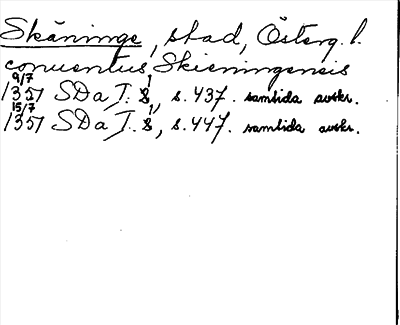 Skäninge, stad, Österg. l.
conventus Skieningensis
9/7
1351 SDa I. 8, s. 437. samtida avskr.
15/7
1351 SDa I. 8, s. 447. samtida avskr.